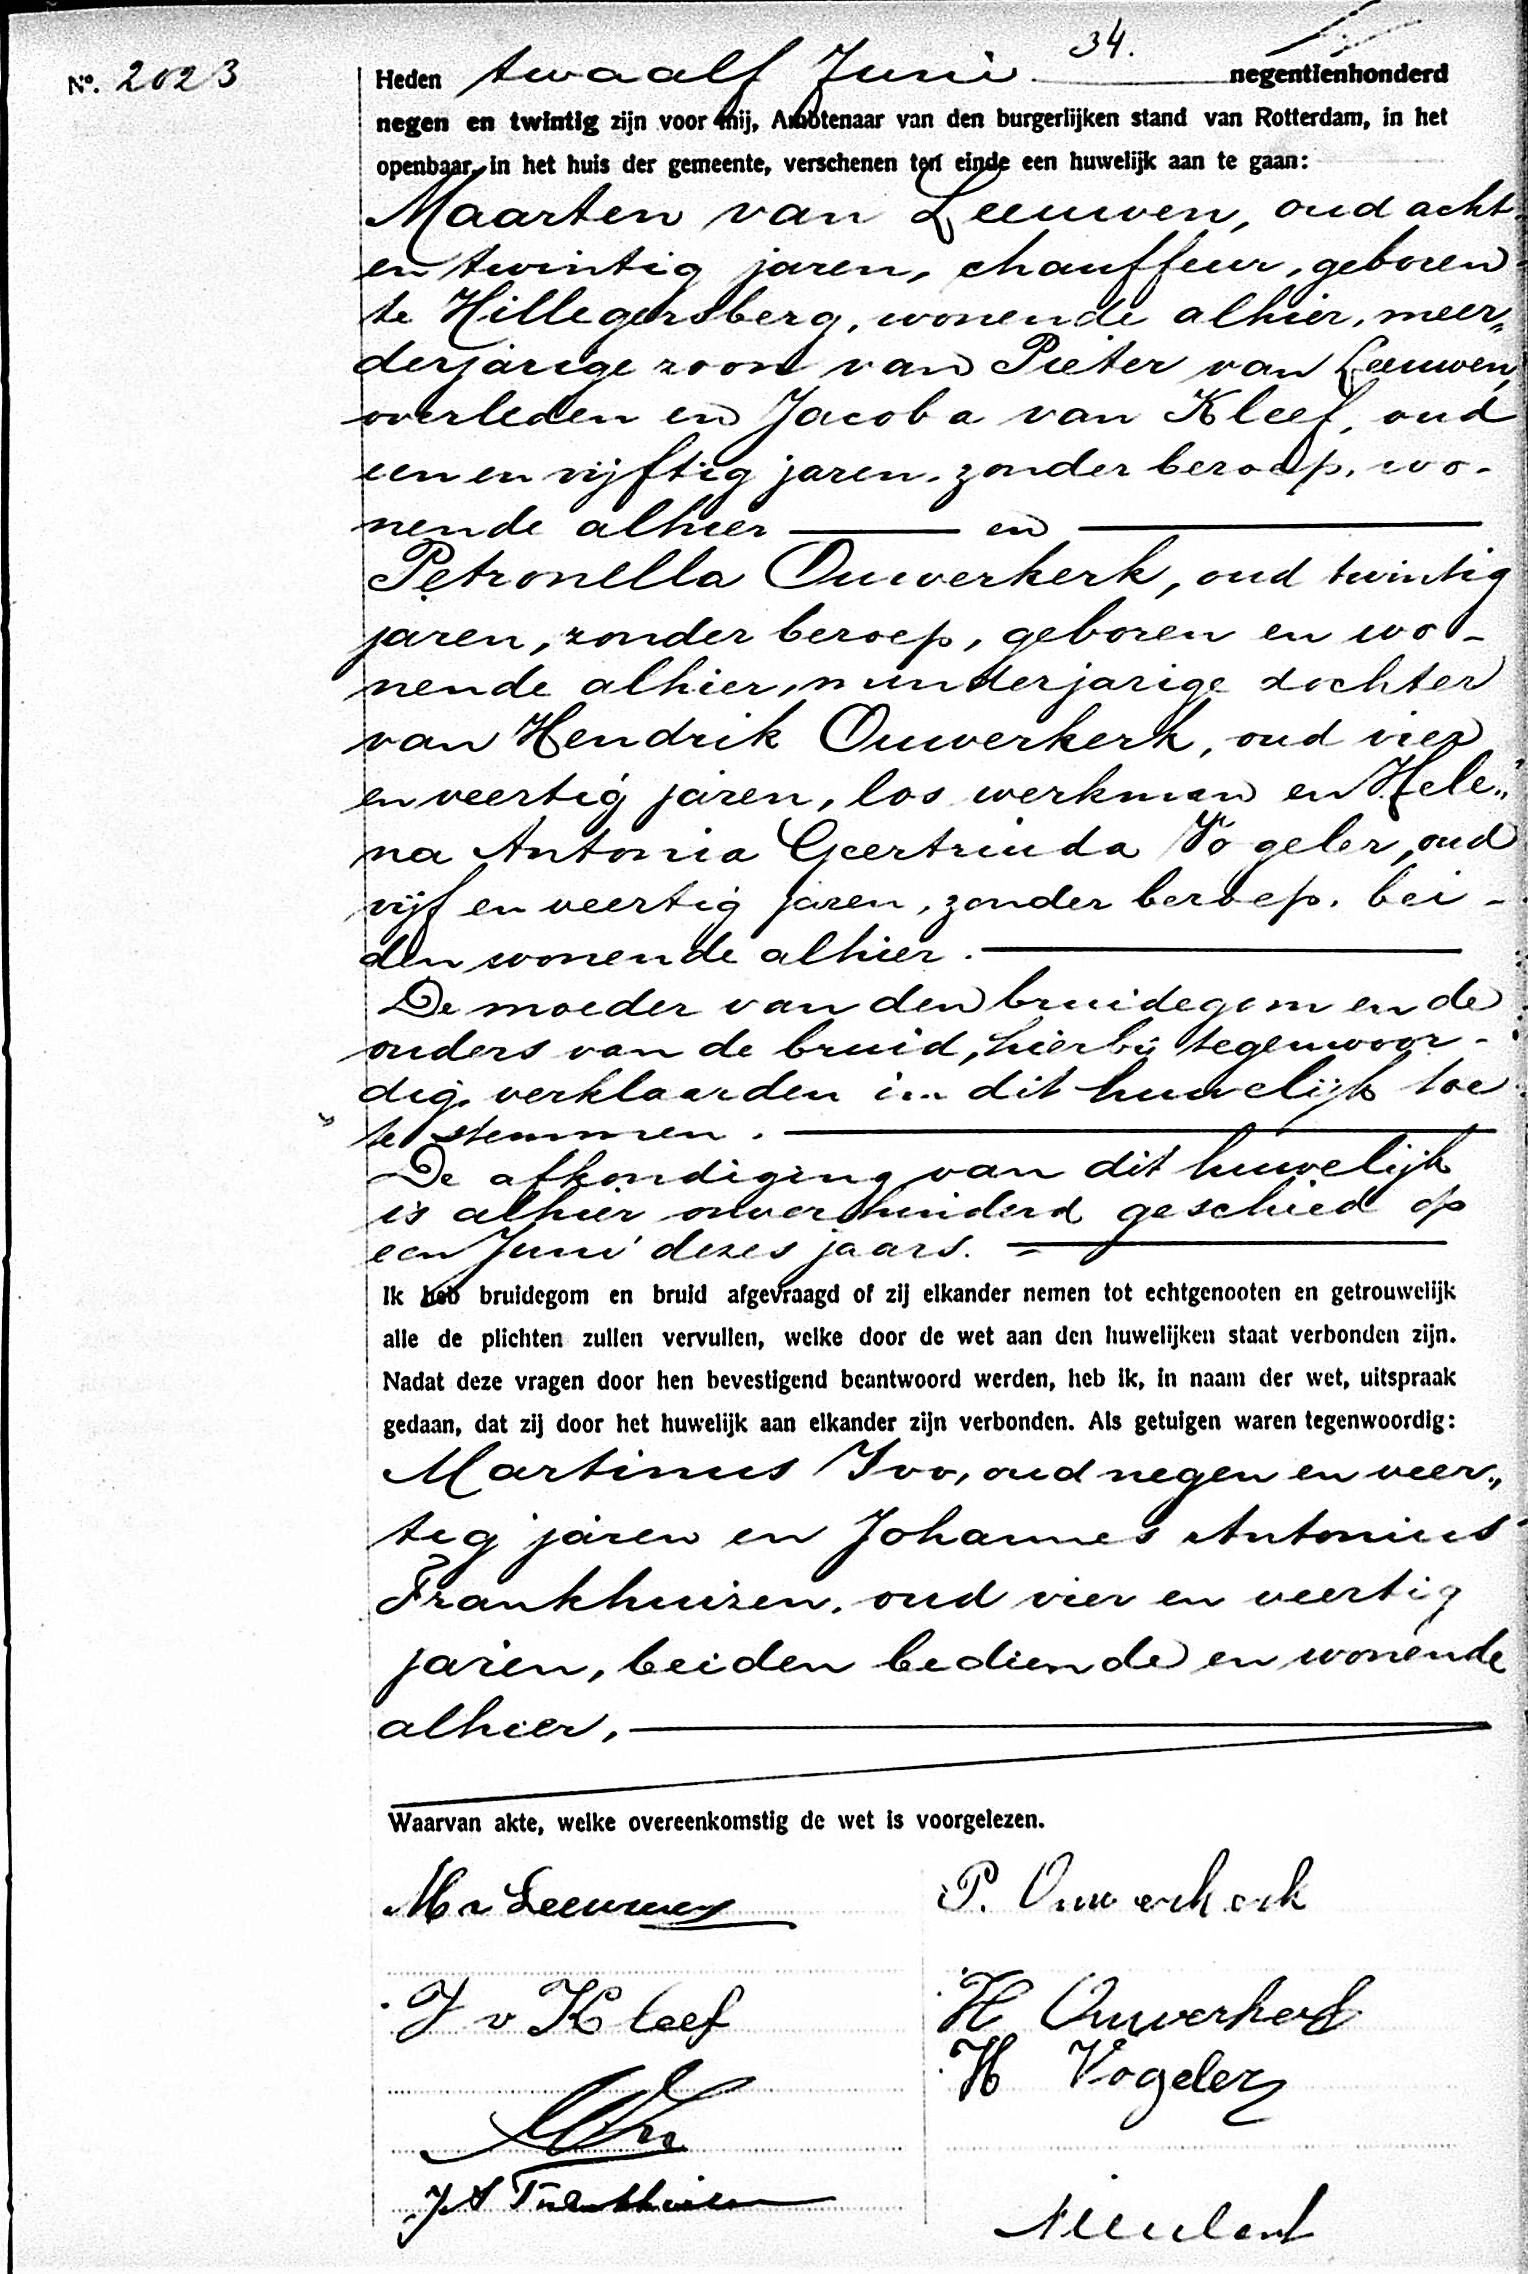 34.
No. 2023
Heden twaalf Juni negentienhonderd
negen en twintig zijn voor mij, Ambtenaar van den burgerlijken stand van Rotterdam, in het
openbaar in het huis der gemeente, verschenen ten einde een huwelijk aan te gaan:
Maarten van Leeuwen, oud acht
en twintig jaren, chauffeur, geboren
te Hillegersberg, wonende alhier, meer„
derjarige zoon van Pieter van Leeuwen,
overleden en Jacoba van Kleef, oud
een en vijftig jaren, zonder beroep, wo-
nende alhier — en —
Petronella Ouwerkerk, oud twintig
jaren, zonder beroep, geboren en wo-
nende alhier, minderjarige dochter
van Hendrik Ouwerkerk, oud vier
en veertig jaren, los werkman en Hele„
na Antonia Geertruida Vogeler, oud
vijf en veertig jaren, zonder beroep, bei-
den wonende alhier. —
De moeder van den bruidegom en de
ouders van de bruid, hierbij tegenwoor-
dig, verklaarden in dit huwelijk toe
te stemmen. —
De afkondiging van dit huwelijk
is alhier onverhinderd geschied op
een Juni dezes jaars. —
Ik heb bruidegom en bruid afgevraagd of zij elkander nemen tot echtgenooten en getrouwelijk
alle de plichten zullen vervullen, welke door de wet aan den huwelijken staat verbonden zijn.
Nadat deze vragen door hen bevestigend beantwoord werden, heb ik, in naam der wet, uitspraak
gedaan, dat zij door het huwelijk aan elkander zijn verbonden. Als getuigen waren tegenwoordig:
Martinus Ivo, oud negen en veer„
tig jaren en Johannes Antonius
Frankhuizen, oud vier en veertig
jaren, beiden bediende en wonende
alhier, —
Waarvan akte, welke overeenkomstig de wet is voorgelezen.
M v Leeuwen P. Ouwerkerk
J v Kleef H Ouwerkerk
H Vogeler
J A Frankhuizen